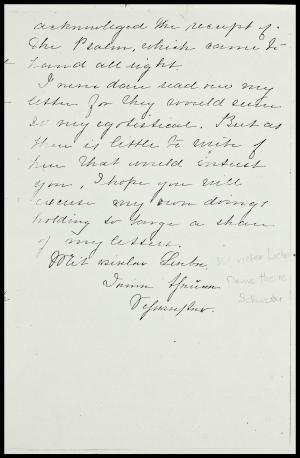 acknowleged the receipt of
the Psalm, which came to
hand all right.
I never dare read over my
letter for they would seem
so very egotistical. But as
there is little to write of
here that would interest
you, I hope you will
excuse my own doings
holding so large a share
of my letters.
Mit vieler Liebe,
Deine
Schwester